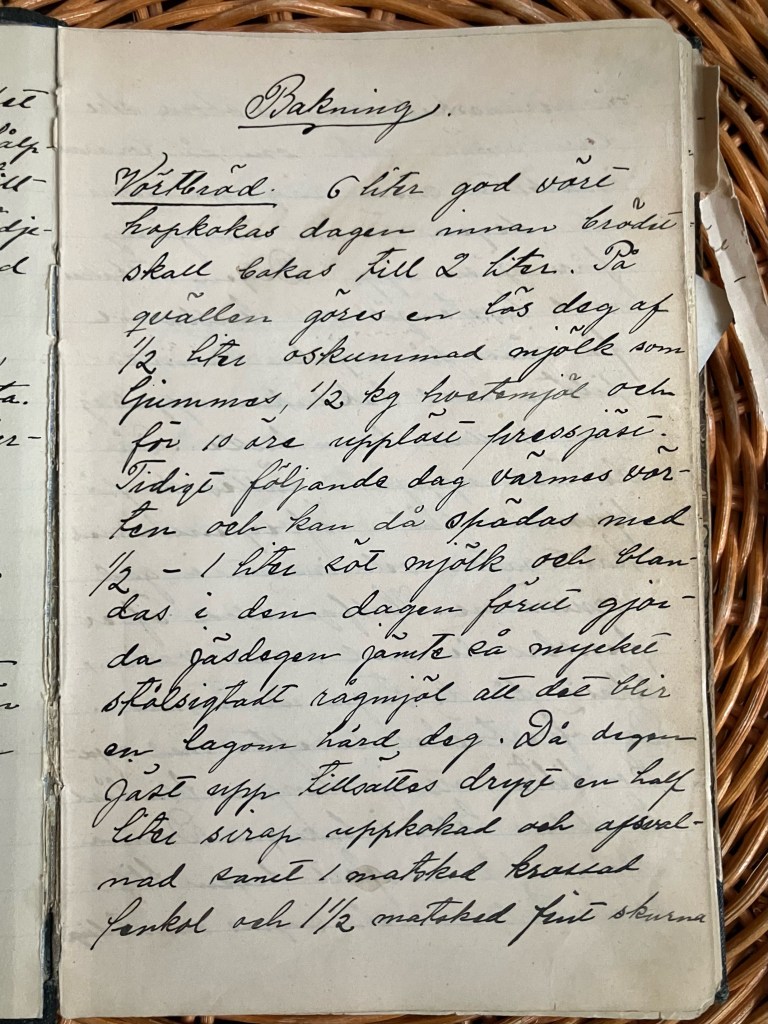 Bakning.
Vörtbröd. 6 liter god vört
hopkokas dagen innan brödet
skall bakas till 2 liter. På
qvällen göres en lös deg af
1/2 liter oskummad mjölk som
ljummas, 1/2 kg hvetemjöl och
för 10 öre upplöst pressjäst.
Tidigt följande dag värmes vör-
ten och kan då spädas med
1/2 - 1 liter söt mjölk och blan-
das i den dagen förut gjor-
da jäsdegen jämte så mycket
stålsigtadt rågmjöl att det blir
en lagom hård deg. Då degen
jäst upp tillsättes drygt en half
liter sirap uppkokad och afsval-
nad samt 1 matsked krossad
fenkol och 1 1/2 matsked fint skurna